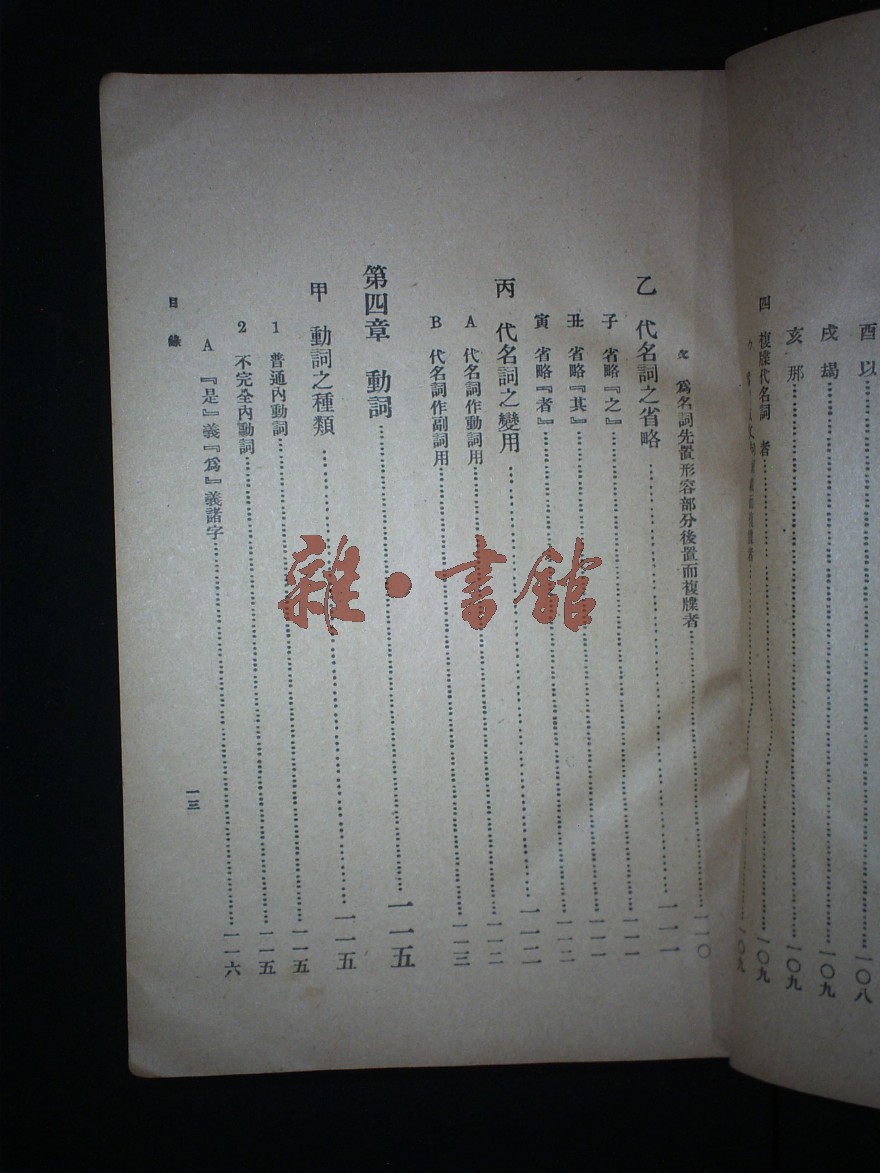 酉 以……一〇八
戌 曷……一〇九
亥 那……一〇九
四 複牒代名詞 者……一〇九
……一〇九
攵 爲名詞先置形容部分後置而複牒者……一一〇
乙 代名詞之省略……一一一
子 省略『之』……一一一
丑 省略『其』……一一一
寅 省略『者』……一一二
丙 代名詞之變用……一一二
A 代名詞作動詞用……一一二
B 代名詞作副詞用……一一三
第四章 動詞……一一五
甲 動詞之種類……一一五
1 普通內動詞……一一五
2 不完全內動詞……一一五
A 『是』義『爲』義諸字……一一六
目錄
一三
雜·書館